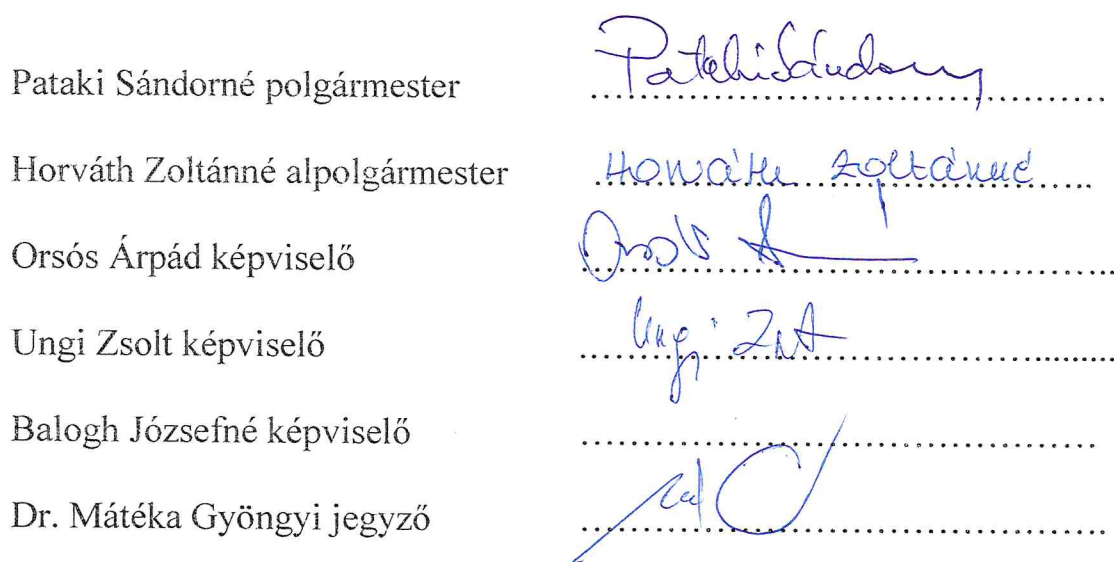 Pataki Sándorné polgármester Pataki Sándorné
Horváth Zoltánné alpolgármester Horváth Zoltánné
Orsós Árpád képviselő Orsós
Ungi Zsolt képviselő Ungi Zsolt
Balogh Józsefné képviselő
Dr. Mátéka Gyöngyi jegyző